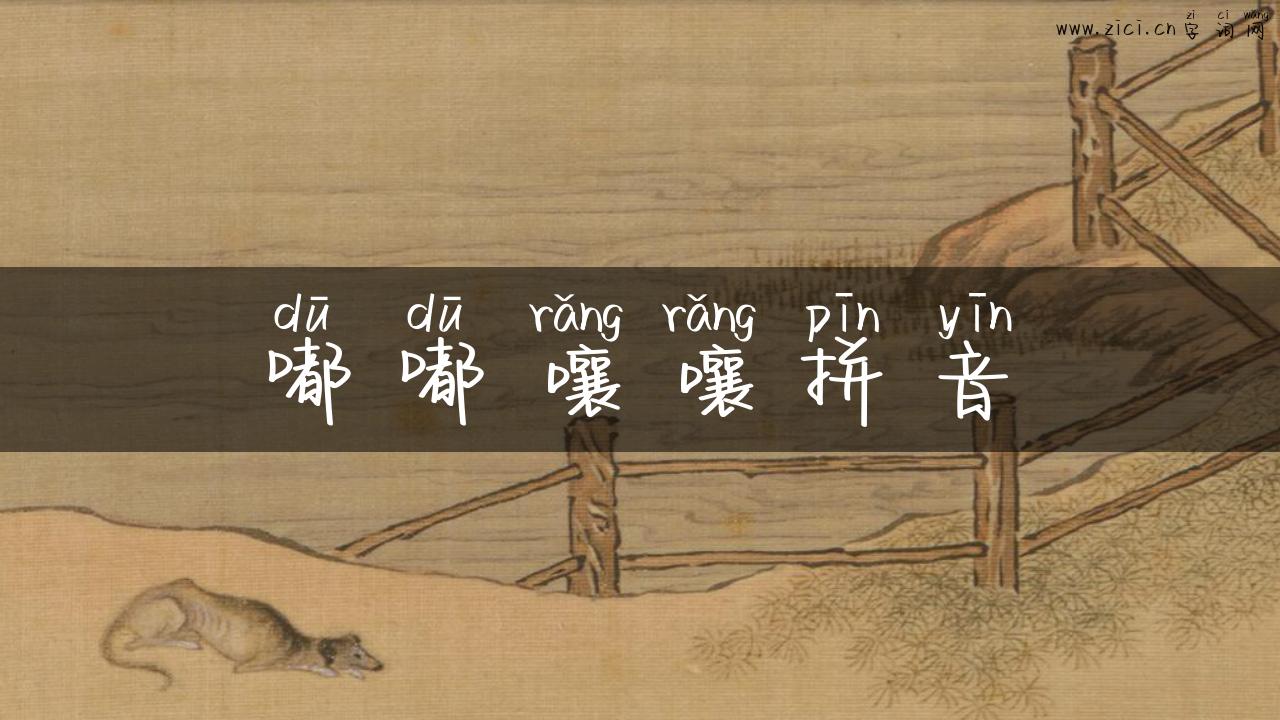 zi ci wang
www.zici.cn 字词网
dū dū rǎng rǎng pīn yīn
嘟嘟嚷嚷拼音